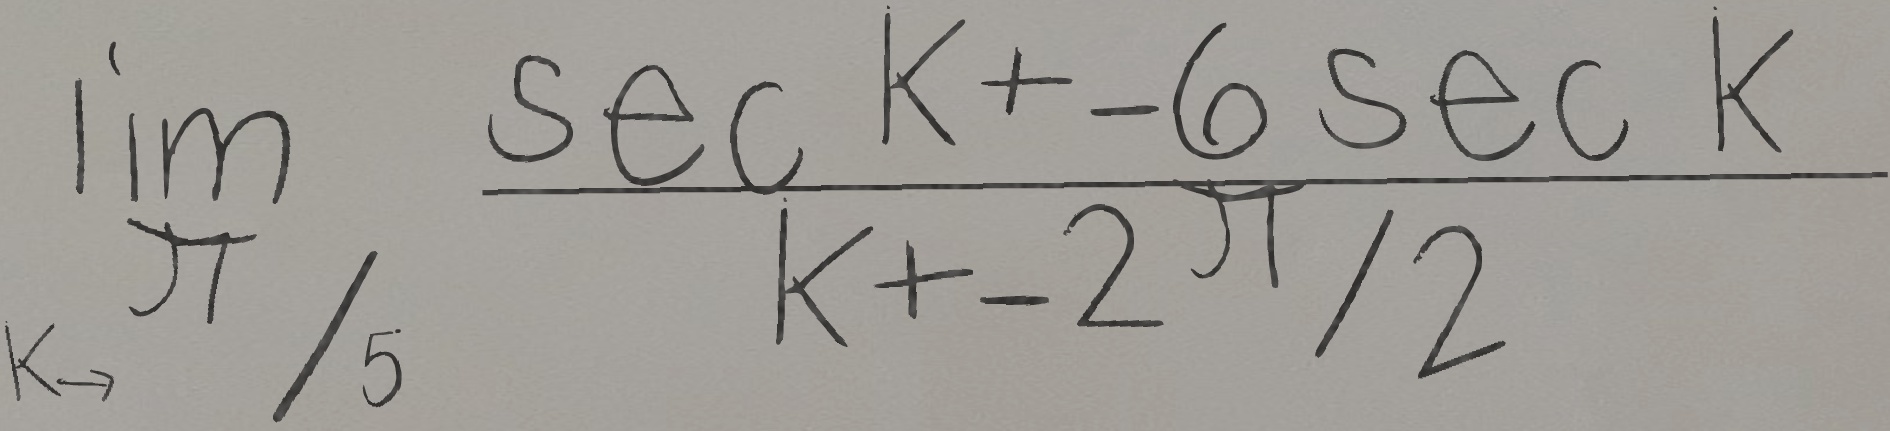 lim K→ π/5 sec K + -6 sec K / K + -2 π/2